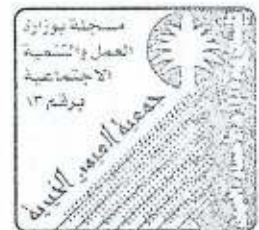 مسجلة بوزارة
العمل والتنمية
الاجتماعية
برقم ١٣
جمعية العيون الخيرية